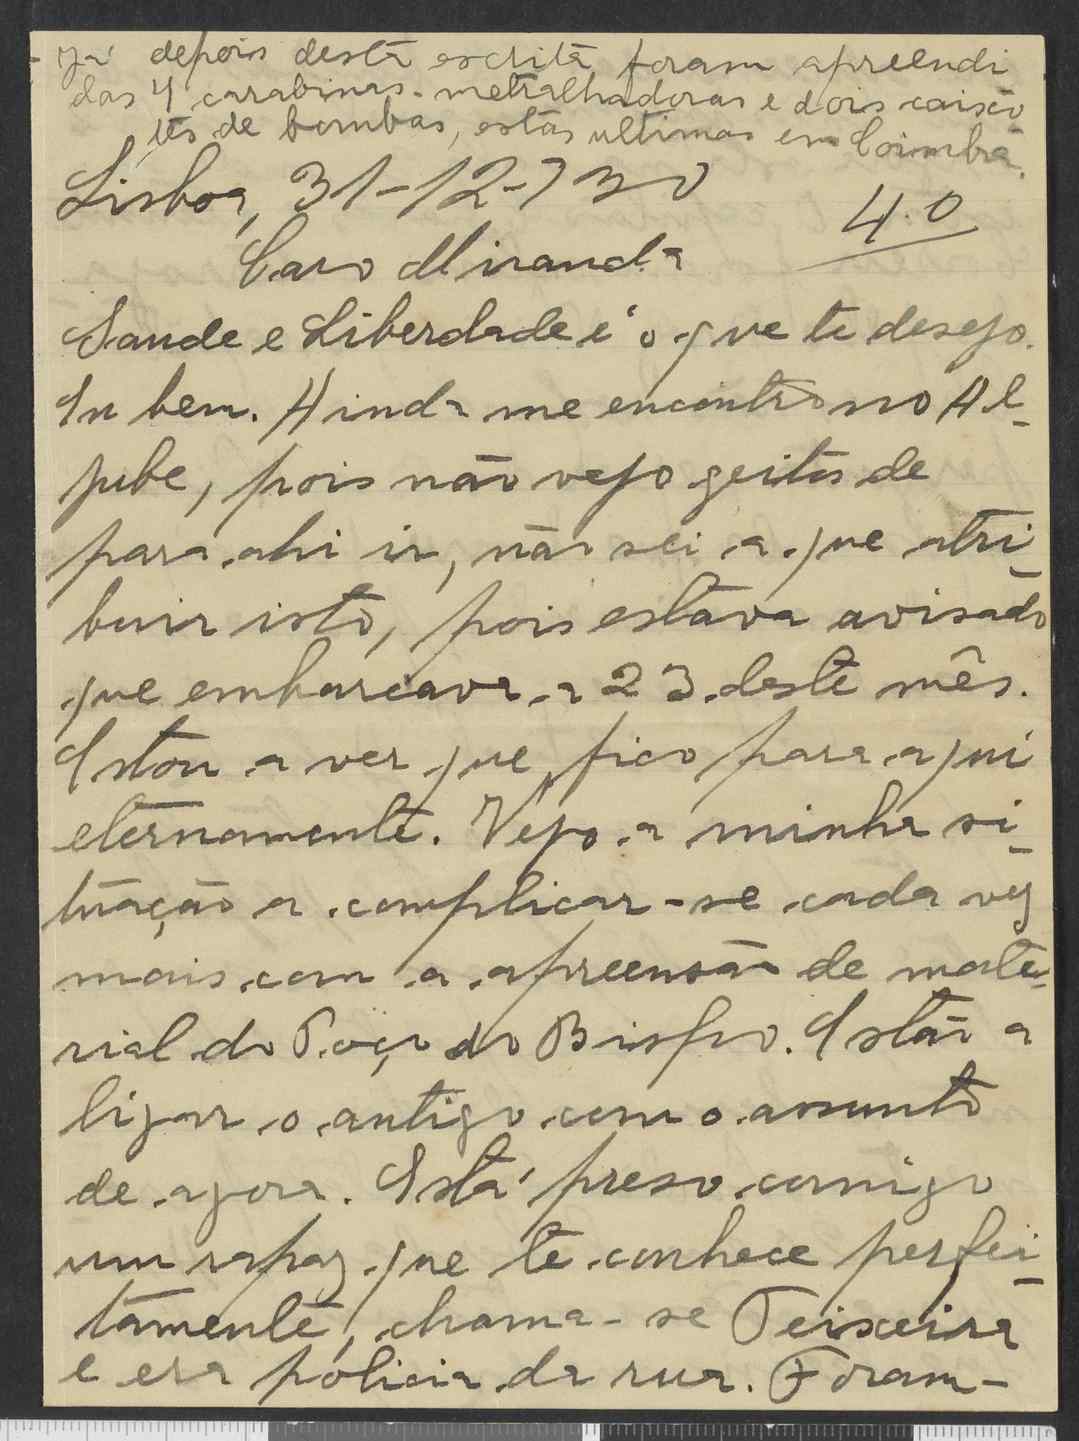 Já depois desta escrita foram apreendi
das 4 carabinas-metralhadoras e dois caixo
tes de bombas, estas ultimas em Coimbra.
Lisboa, 31-12-930
4.0
Caro Miranda
Saude e Liberdade é o que te desejo.
Eu bem. Ainda me encontro no Al-
jube, pois não vejo geitos de
para ahi ir, não sei a que atri-
buir isto, pois estava avisado
que embarcava a 23 deste mês.
Estou a ver que fico para aqui
eternamente. Vejo a minha si-
tuação a complicar-se cada vez
mais com a apreensão de mate-
rial do Poço do Bispo. Estão a
ligar o antigo com o assunto
de agora. Está preso comigo
um rapaz que te conhece perfei-
tamente, chama-se Teixeira
e era policia da rua. Foram-